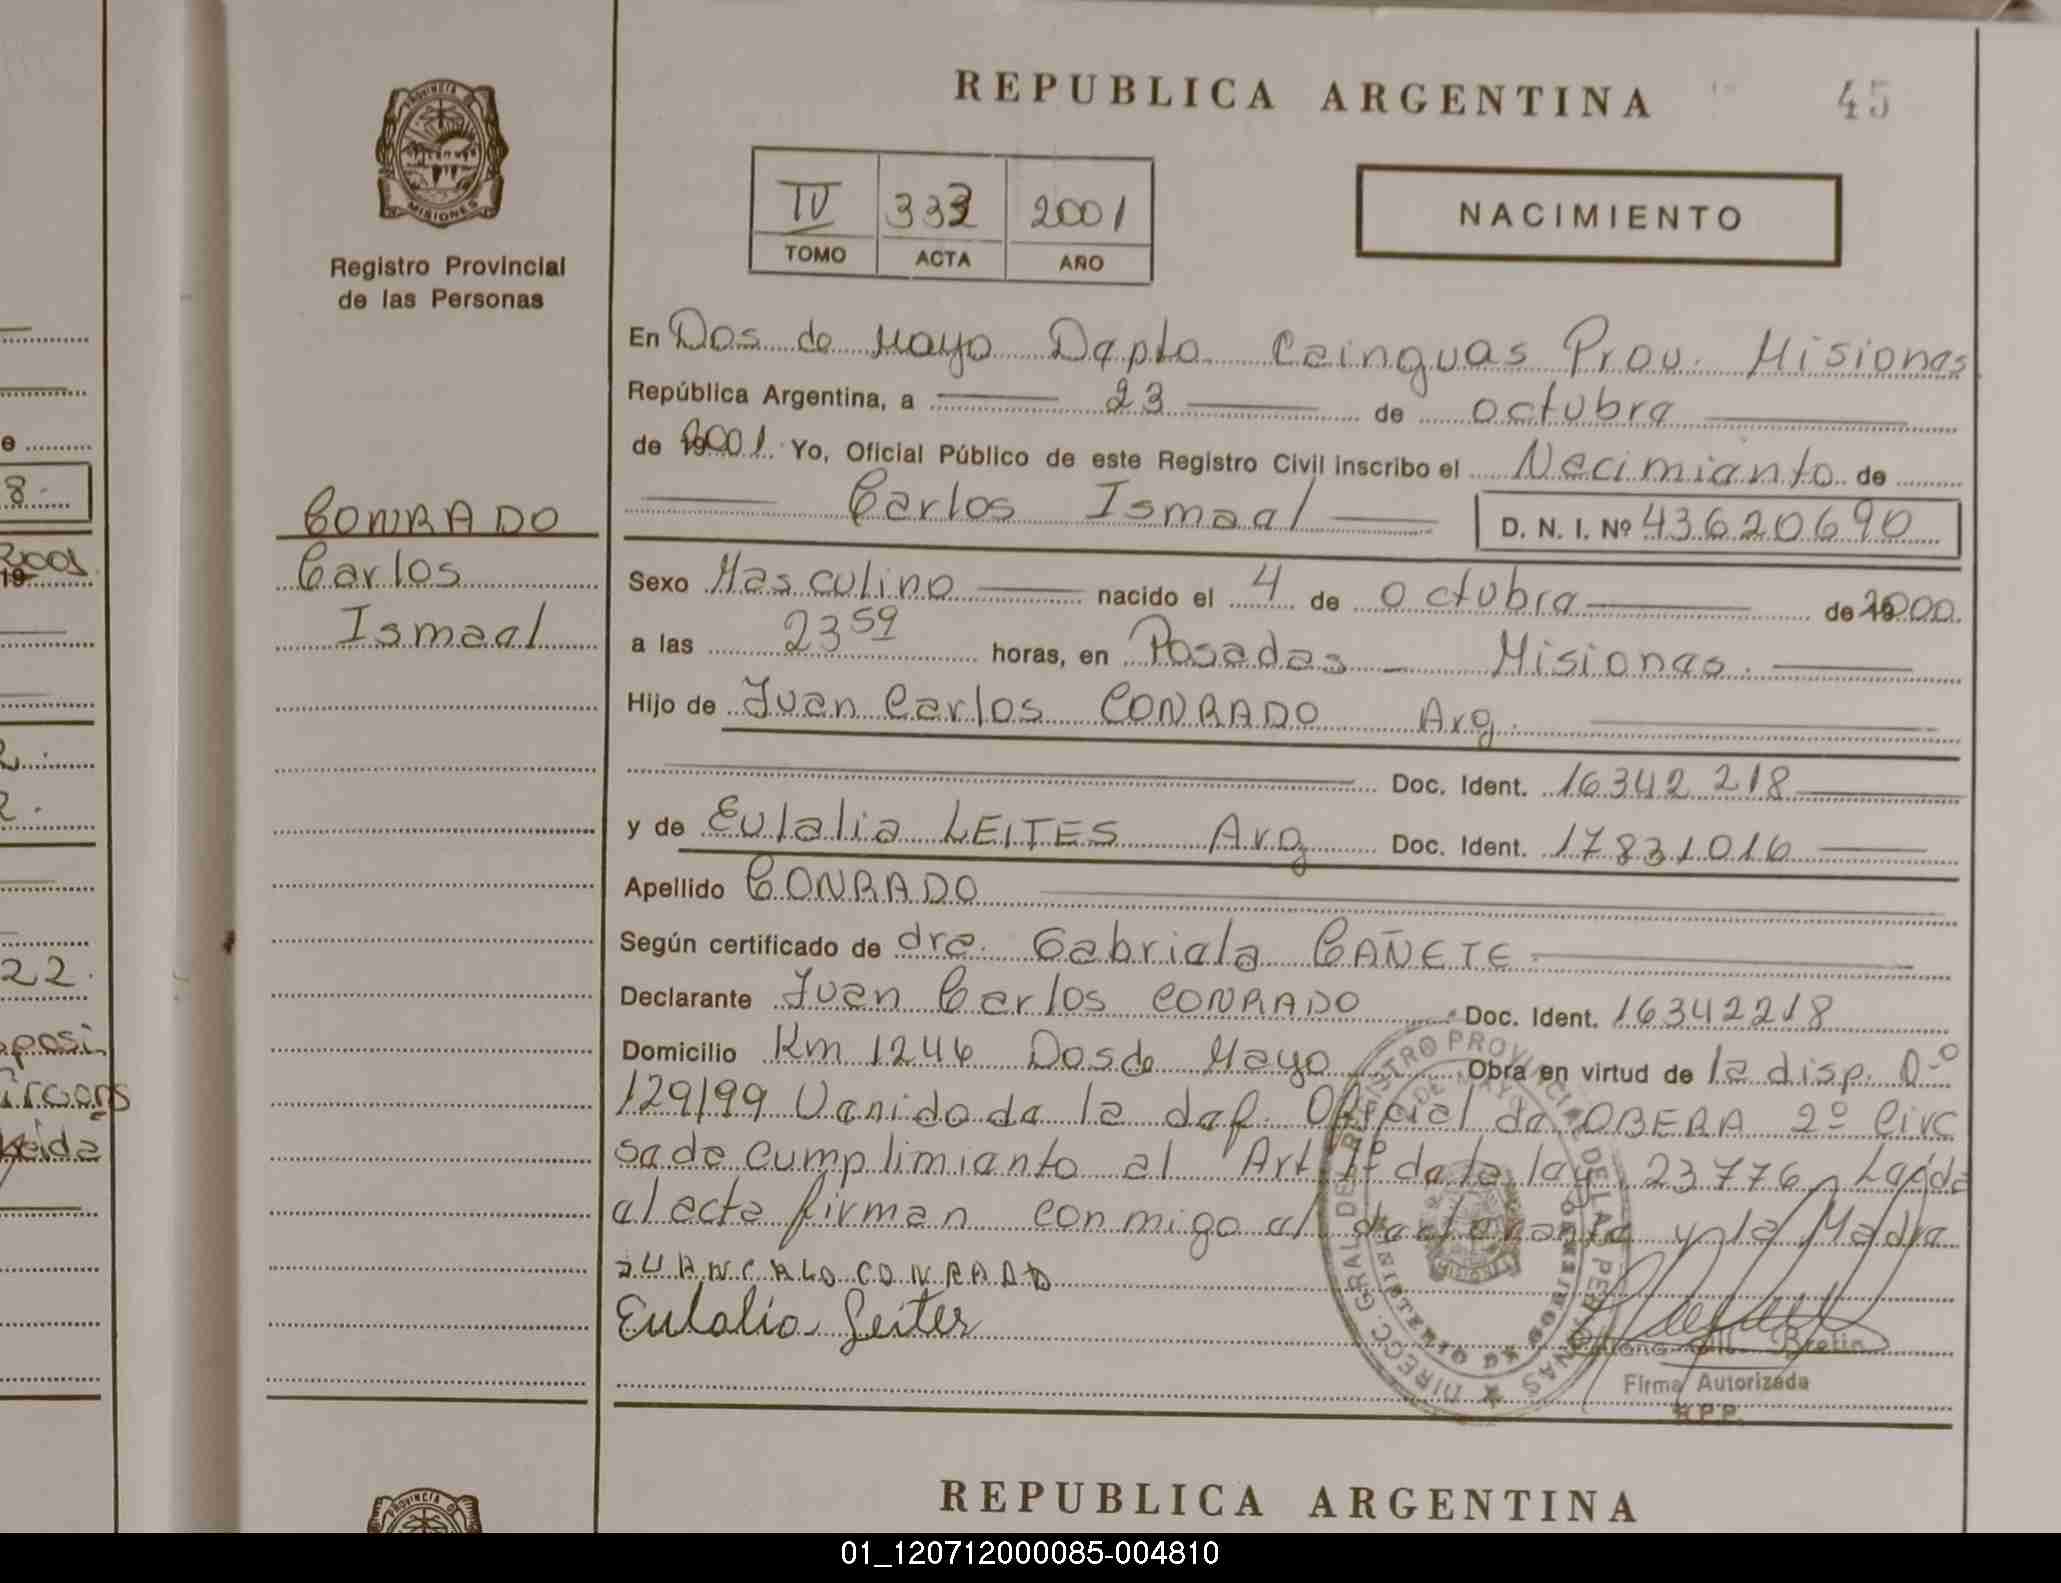 REPUBLICA ARGENTINA
45
PROVINCIA DE
MISIONES
Registro Provincial
de las Personas
IV 333 2001
TOMO ACTA AÑO
NACIMIENTO
En Dos de Mayo Dapto Cainguas Prov. Misiones
República Argentina, a 23 de octubre
de 2001. Yo, Oficial Público de este Registro Civil inscribo el Nacimiento de
Carlos Ismael D. N. I. Nº 43620690
CONRADO
Carlos
Ismael
Sexo Masculino nacido el 4 de octubre de 2000.
a las 23 59 horas, en Posadas - Misiones.
Hijo de Juan Carlos CONRADO Arg.
Doc. Ident. 16342218
y de Eulalia LEITES Arg Doc. Ident. 17831016
Apellido CONRADO
Según certificado de dra. Gabriela CAÑETE
Declarante Juan Carlos CONRADO Doc. Ident. 16342218
Domicilio Km 1246 Dos de Mayo Obra en virtud de la disp. nº
129/99 Venido de la def. Oficial de OBERA 2º Circ
sada cumplimianto al Art 1º de la ley 23776 Leída
el acta firman conmigo el declarante y la Madre
JUAN CALO CONRADO
Eulalia Leites
Bretin
Firma Autorizada
R.P.P.
8.
2001
19
22.
REPUBLICA ARGENTINA
PROVINCIA D
01_120712000085-004810